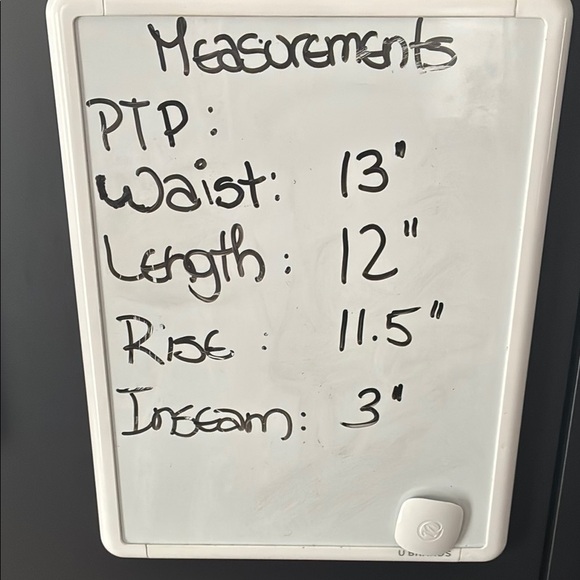 Measurements
PTP:
Waist: 13"
Length: 12"
Rise: 11.5"
Inseam: 3"